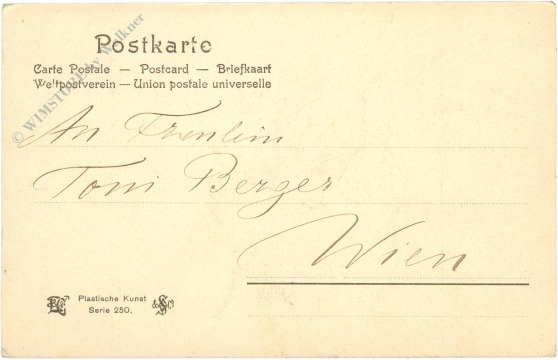 Postkarte
Carte Postale — Postcard — Briefkaart
Weltpostverein — Union postale universelle
© WIMSTORE by Walkner
An Fräulein
Toni Berger
Wien
Plastische Kunst
Serie 250.